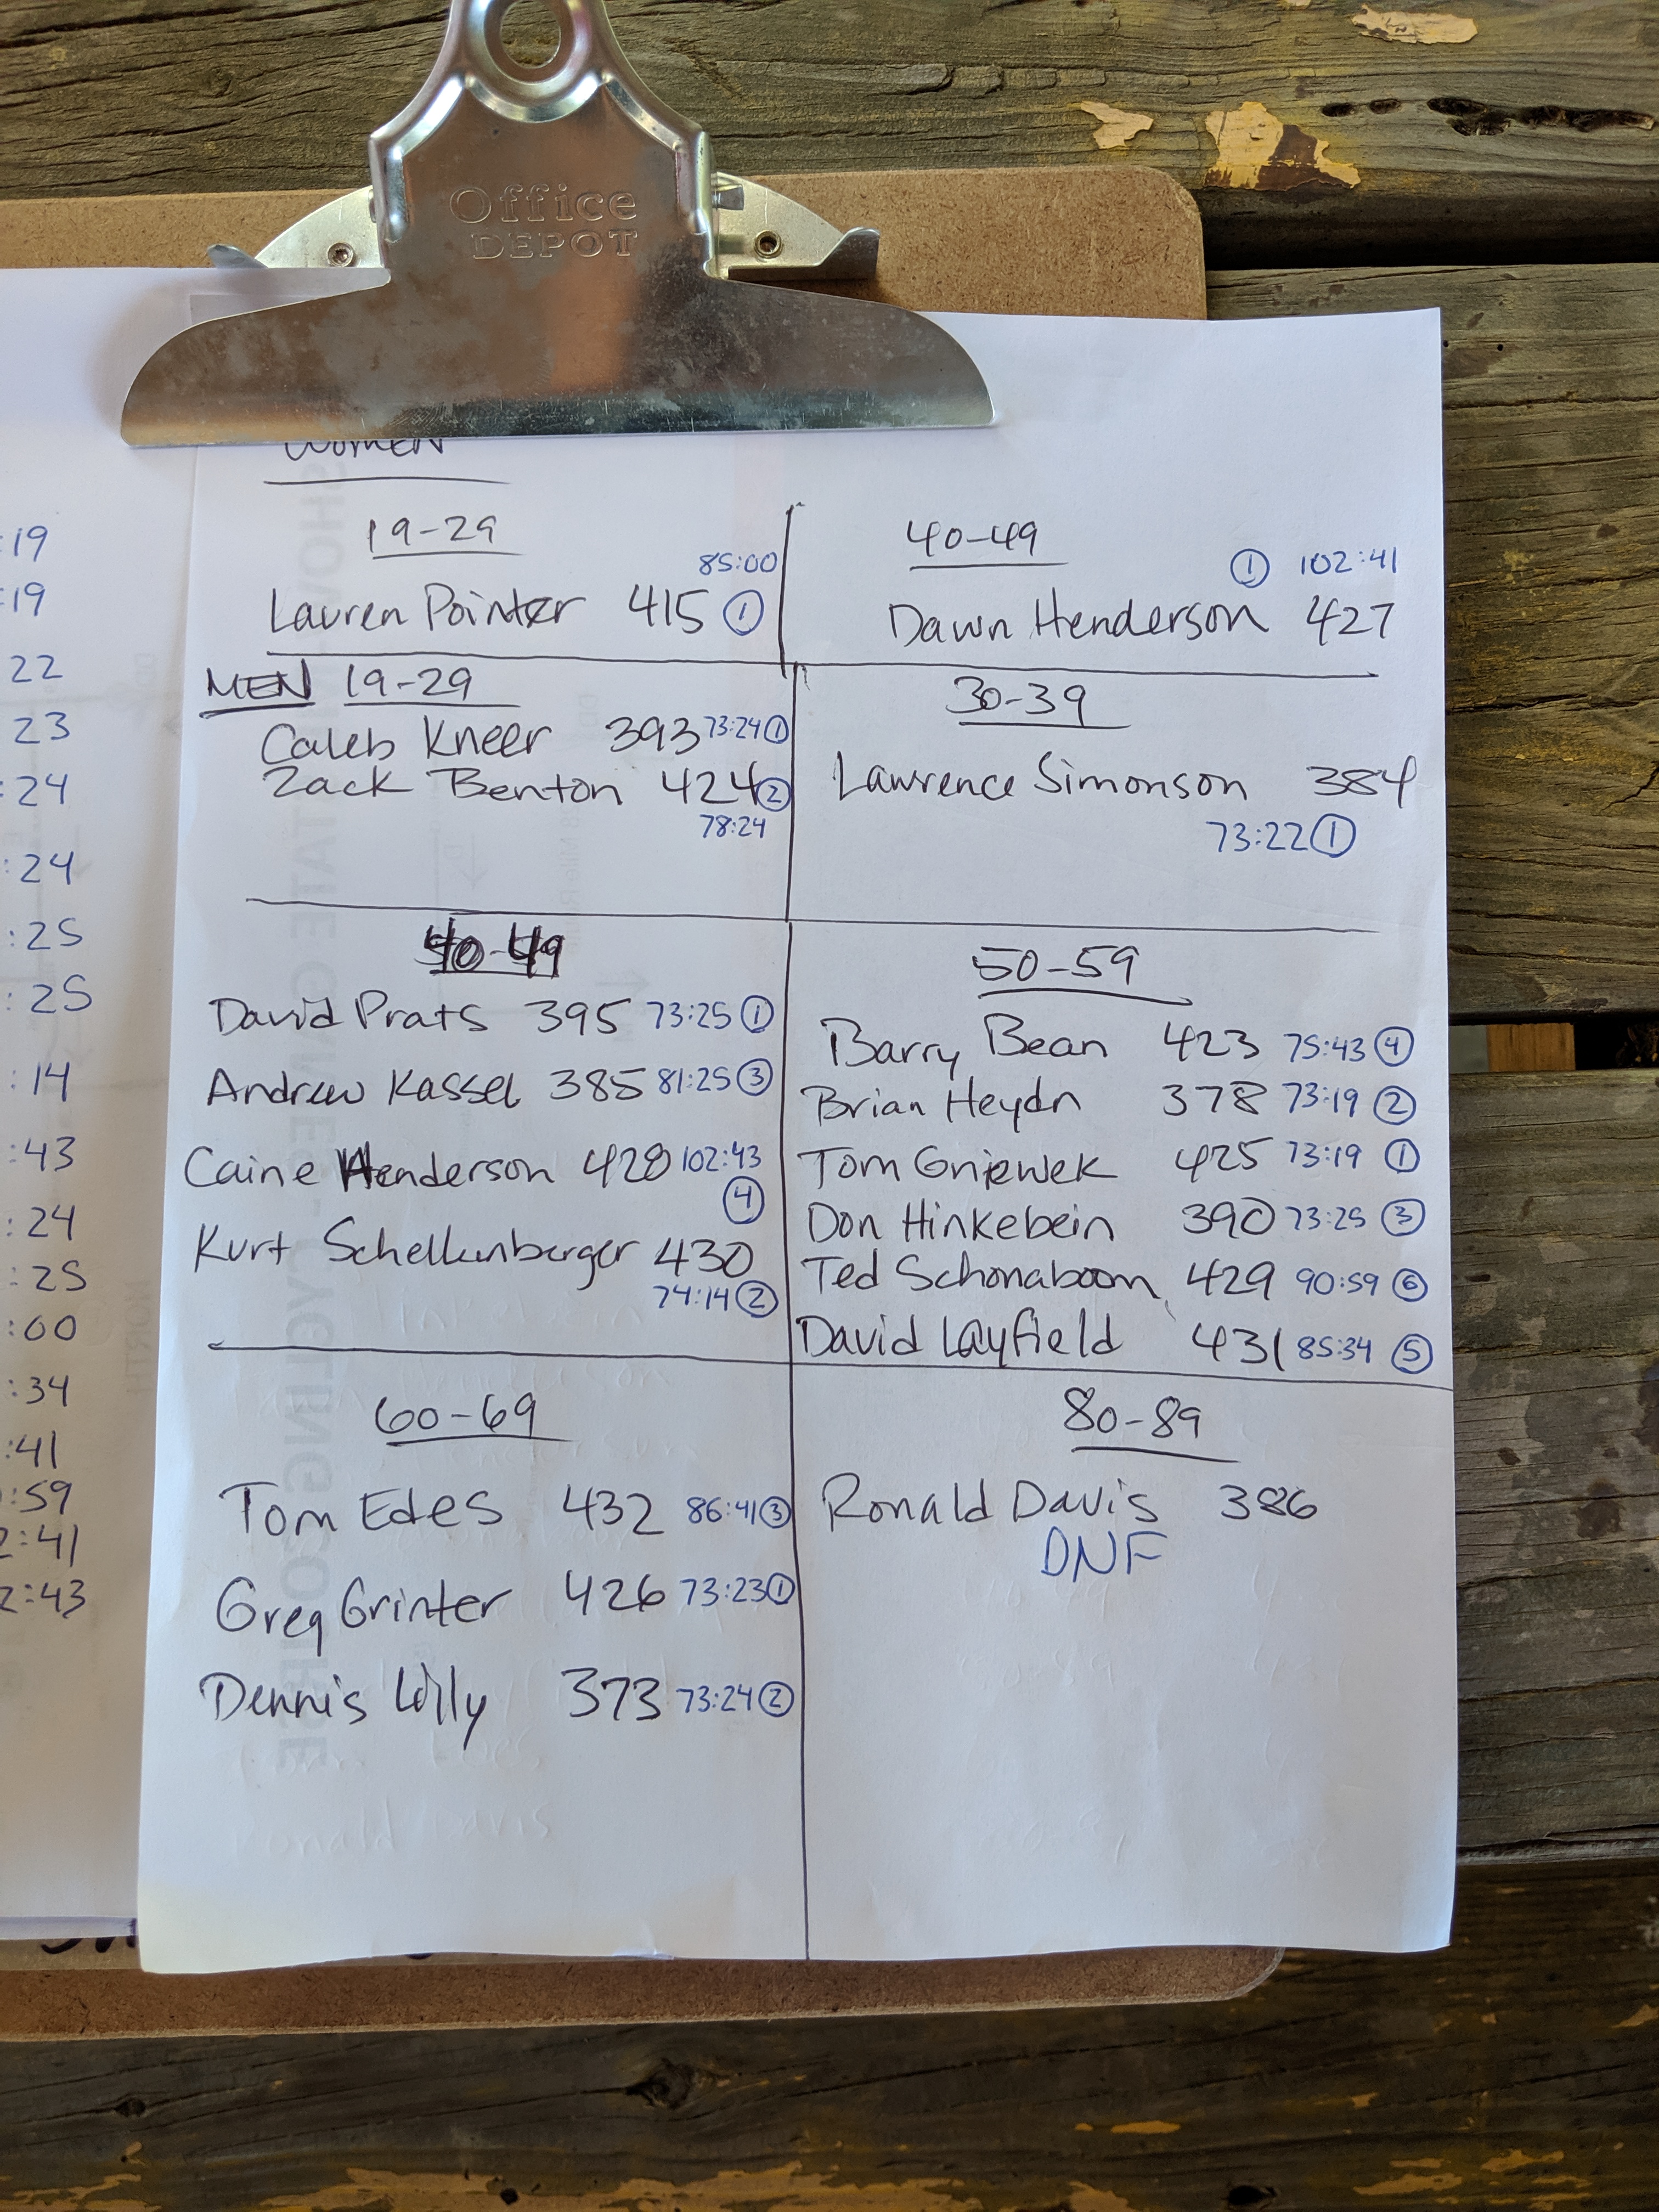 Office
DEPOT
WOMEN
19-29
85:00
Lauren Pointer 415 1
40-49
1 102:41
Dawn Henderson 427
MEN 19-29
Caleb Kneer 393 73:24 1
Zack Benton 424 2
78:24
30-39
Lawrence Simonson 384
73:22 1
40-49
David Prats 395 73:25 1
Andrew Kassel 385 81:25 3
Caine Henderson 428 102:43
4
Kurt Schellenberger 430
74:14 2
50-59
Barry Bean 423 75:43 4
Brian Heydn 378 73:19 2
Tom Gniewek 425 73:19 1
Don Hinkebein 390 73:25 3
Ted Schonaboom 429 90:59 6
David Layfield 431 85:34 5
60-69
Tom Edes 432 86:41 3
Greg Grinter 426 73:23 1
Dennis Lilly 373 73:24 2
80-89
Ronald Davis 386
DNF
:19
:19
22
23
:24
:24
:25
:25
:14
:43
:24
:25
:00
:34
:41
:59
2:41
2:43